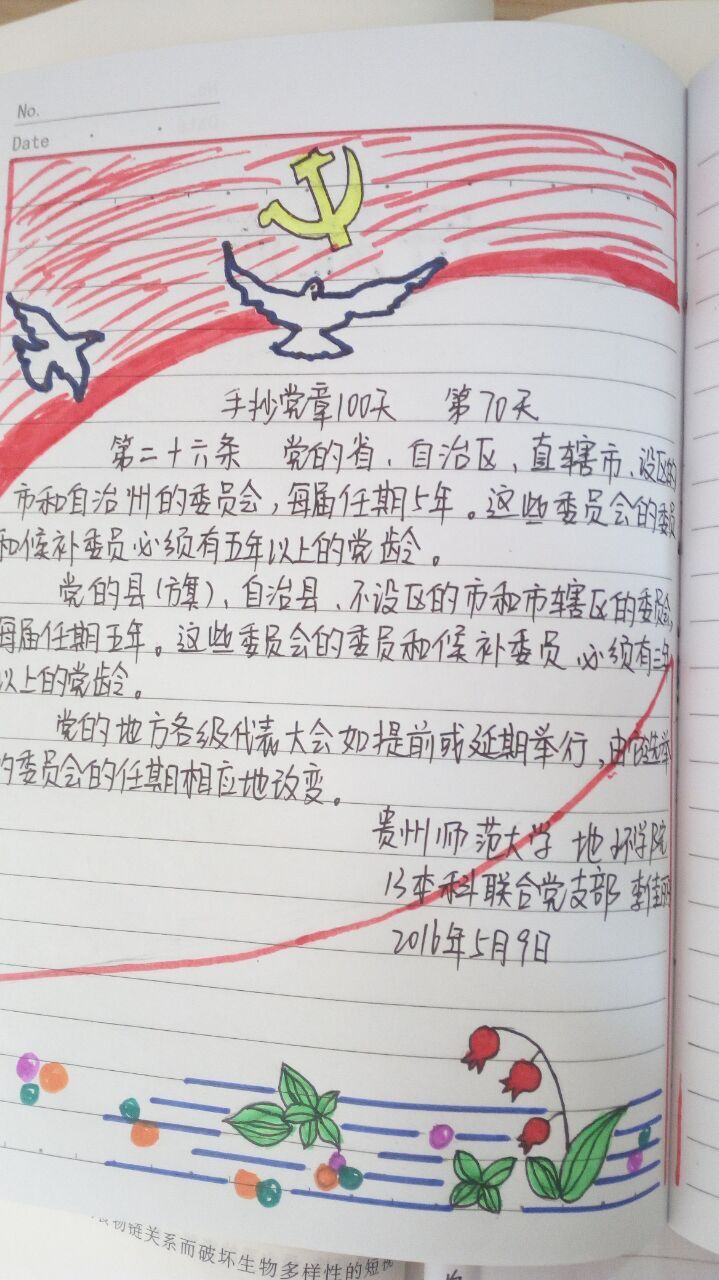 No.
Date
手抄党章100天 第70天
第二十六条 党的省、自治区、直辖市、设区的
市和自治州的委员会,每届任期5年。这些委员会的委员
和候补委员必须有五年以上的党龄。
党的县(旗)、自治县、不设区的市和市辖区的委员会,
每届任期五年。这些委员会的委员和候补委员必须有三年
以上的党龄。
党的地方各级代表大会如提前或延期举行,由它选举
的委员会的任期相应地改变。
贵州师范大学 地环学院
13本科联合党支部 李佳丽
2016年5月9日
物链关系而破坏生物多样性的短视